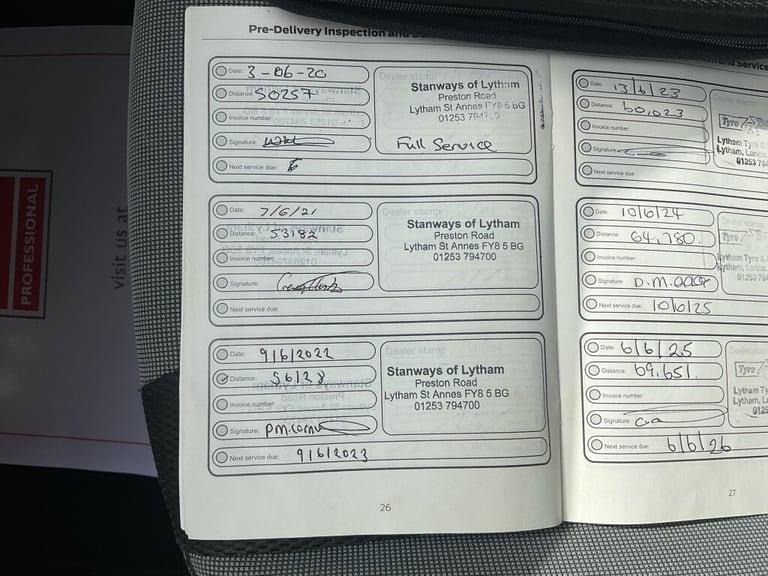 Pre-Delivery Inspection and
Date: 3-06-20
Distance: 50257
Invoice number:
Signature:
Next service due:
Dealer stamp
Stanways of Lytham
Preston Road
Lytham St Annes FY8 5 BG
01253 794
Full Service
Date: 7/6/21
Distance: 53182
Invoice number:
Signature:
Next service due:
Dealer stamp
Stanways of Lytham
Preston Road
Lytham St Annes FY8 5 BG
01253 794700
Date: 9/6/2022
Distance: 56128
Invoice number:
Signature:
Next service due: 9/6/2023
Dealer stamp
Stanways of Lytham
Preston Road
Lytham St Annes FY8 5 BG
01253 794700
26
and Service
Date: 13/6/23
Distance: 60,023
Invoice number:
Signature:
Next service due:
Tyre
Lytham Tyre &
Lytham, Lancs.
01253 79
Date: 10/6/24
Distance: 64,780.
Invoice number:
Signature:
Next service due: 10/6/25
Dealer
Tyre
Lytham Tyre &
Lytham,
01253
Date: 6/6/25
Distance: 69,651.
Invoice number:
Signature:
Next service due: 6/6/26
Dealer
Tyre
Lytham Ty
Lytham,
27
PROFESSIONAL
visit us at